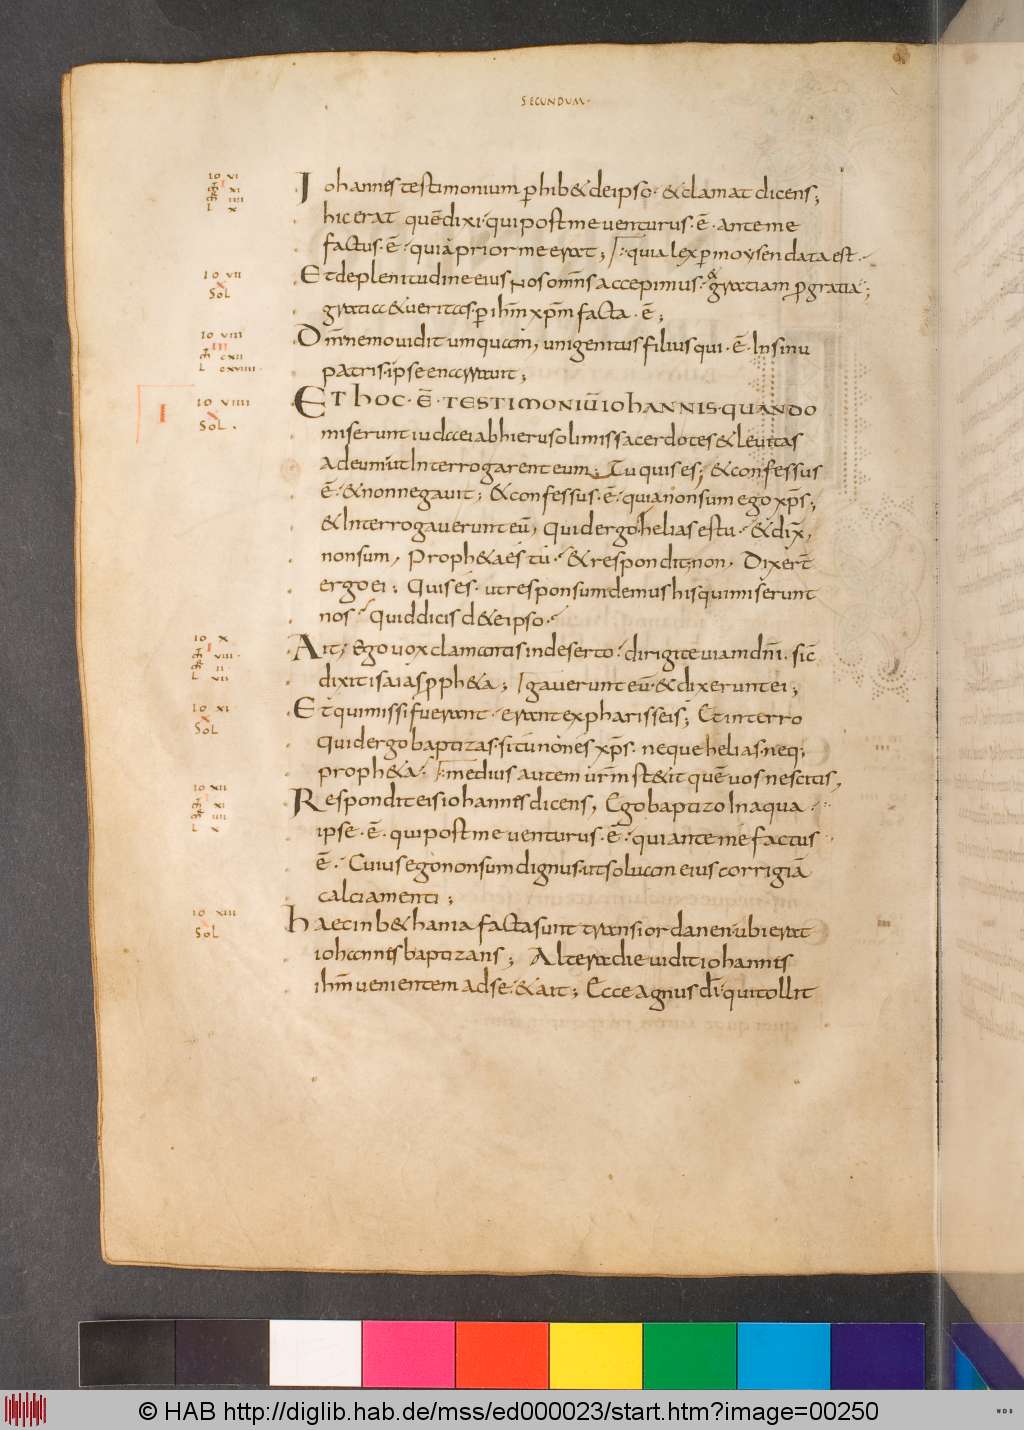 SECUNDUM·
IO VI
mt XI
mr IIII
L X
Iohannis testimonium phib& deipso· & clamat dicens;
hic erat quē dixi· qui post me venturus· ē· ante me
factus· ē· quia prior me erat; quia lex p moysen data est·
IO VII
SOL
Et de plenitudine eius nos omns accepimus· gratiam p gratia;
gratia & veritas· p ihm xpm facta· ē;
IO VIII
III
mt CXII
L CXVIIII
Dm nemo vidit umquam, unigenitus filius qui· ē· In sinu
patris ipse enarravit;
I
IO VIIII
SOL·
ET hOC· Ē· TESTIMONIŪ IOHANNIS· QUANDO
miserunt iudaei ab hierusolimis sacerdotes & levitas
ad eum ut Interrogarent eum; Tu quis es; & confessus
ē· & non negavit; & confessus· ē· quia non sum ego xps;
& Interrogaverunt eū, Quid ergo helias es tu· & dix,
non sum, Proph&a es tu· & respondit non, Dixert
ergo ei; Quis es· ut responsum demus his qui miserunt
nos· Quid dicis de te ipso·
IO X
mt VIII·
mr II
L VII
Ait; ego vox clamantis in deserto· dirigite viam dni· sic
dixit isaias pph&a; gaverunt eū· & dixerunt ei;
IO XI
SOL
Et qui missi fuerant· erant ex pharisseis; Et interro
Quid ergo baptizas· si tu non es xps· neque helias· neq;
proph&a· medius autem urm st&it quē vos nescitis,
IO XII
mt XI
mr IIII
L X
Respondit eis iohannis dicens, Ego baptizo In aqua
ipse· ē· qui post me venturus· ē· qui ante me factus
ē· Cuius ego non sum dignus· ut solvam eius corrigiā
calciamenti;
IO XIII
SOL
haec in b&hania facta sunt trans iordanen· ubi erat
iohannis baptizans; Altera die vidit iohannis
ihm venientem ad se· & ait; Ecce agnus di· qui tollit
© HAB http://diglib.hab.de/mss/ed000023/start.htm?image=00250